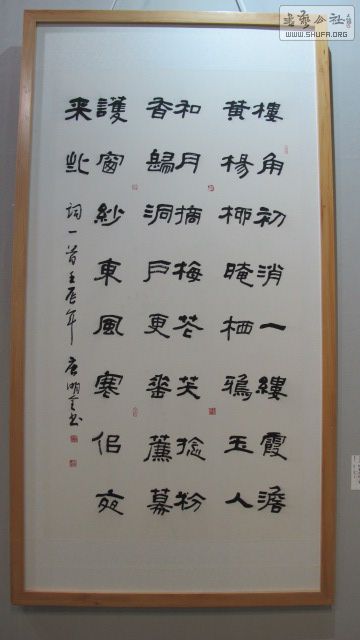 書藝公社
WWW.SHUFA.ORG
樓角初消一縷霞澹
黃楊柳晻栖鴉玉人
和月摘梅花笑捻粉
香歸洞戶更垂簾幕
護窗紗東風寒佀夜
来些
詞一首壬辰年 唐书